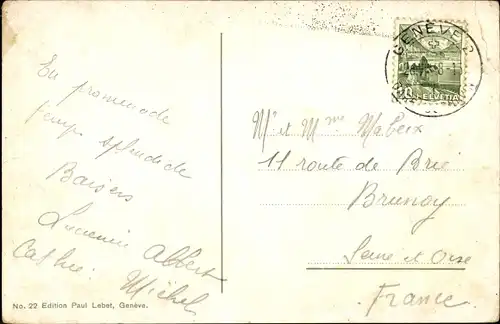 En promenade
temps splendide
Baisers
Lucienne Albert
Cathie. Michel
No. 22 Edition Paul Lebet, Genève.
GENÈVE 2
HELVETIA
Mr et Mme Mabeix
11 route de Brie
Brunoy
Seine et Oise
France